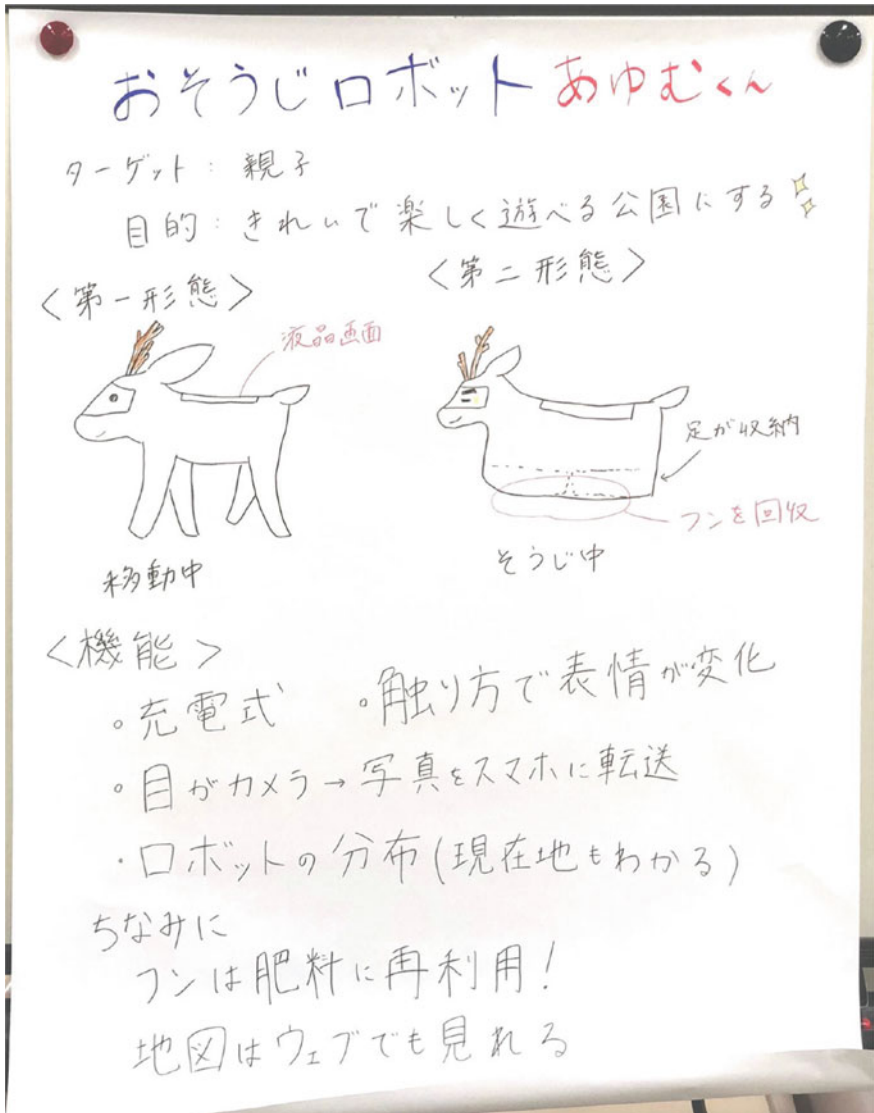 おそうじロボット あゆむくん
ターゲット：親子
目的：きれいで楽しく遊べる公園にする
〈第一形態〉
液晶画面
移動中
〈第二形態〉
足が収納
フンを回収
そうじ中
〈機能〉
・充電式 ・触り方で表情が変化
・目がカメラ→写真をスマホに転送
・ロボットの分布(現在地もわかる)
ちなみに
フンは肥料に再利用!
地図はウェブでも見れる